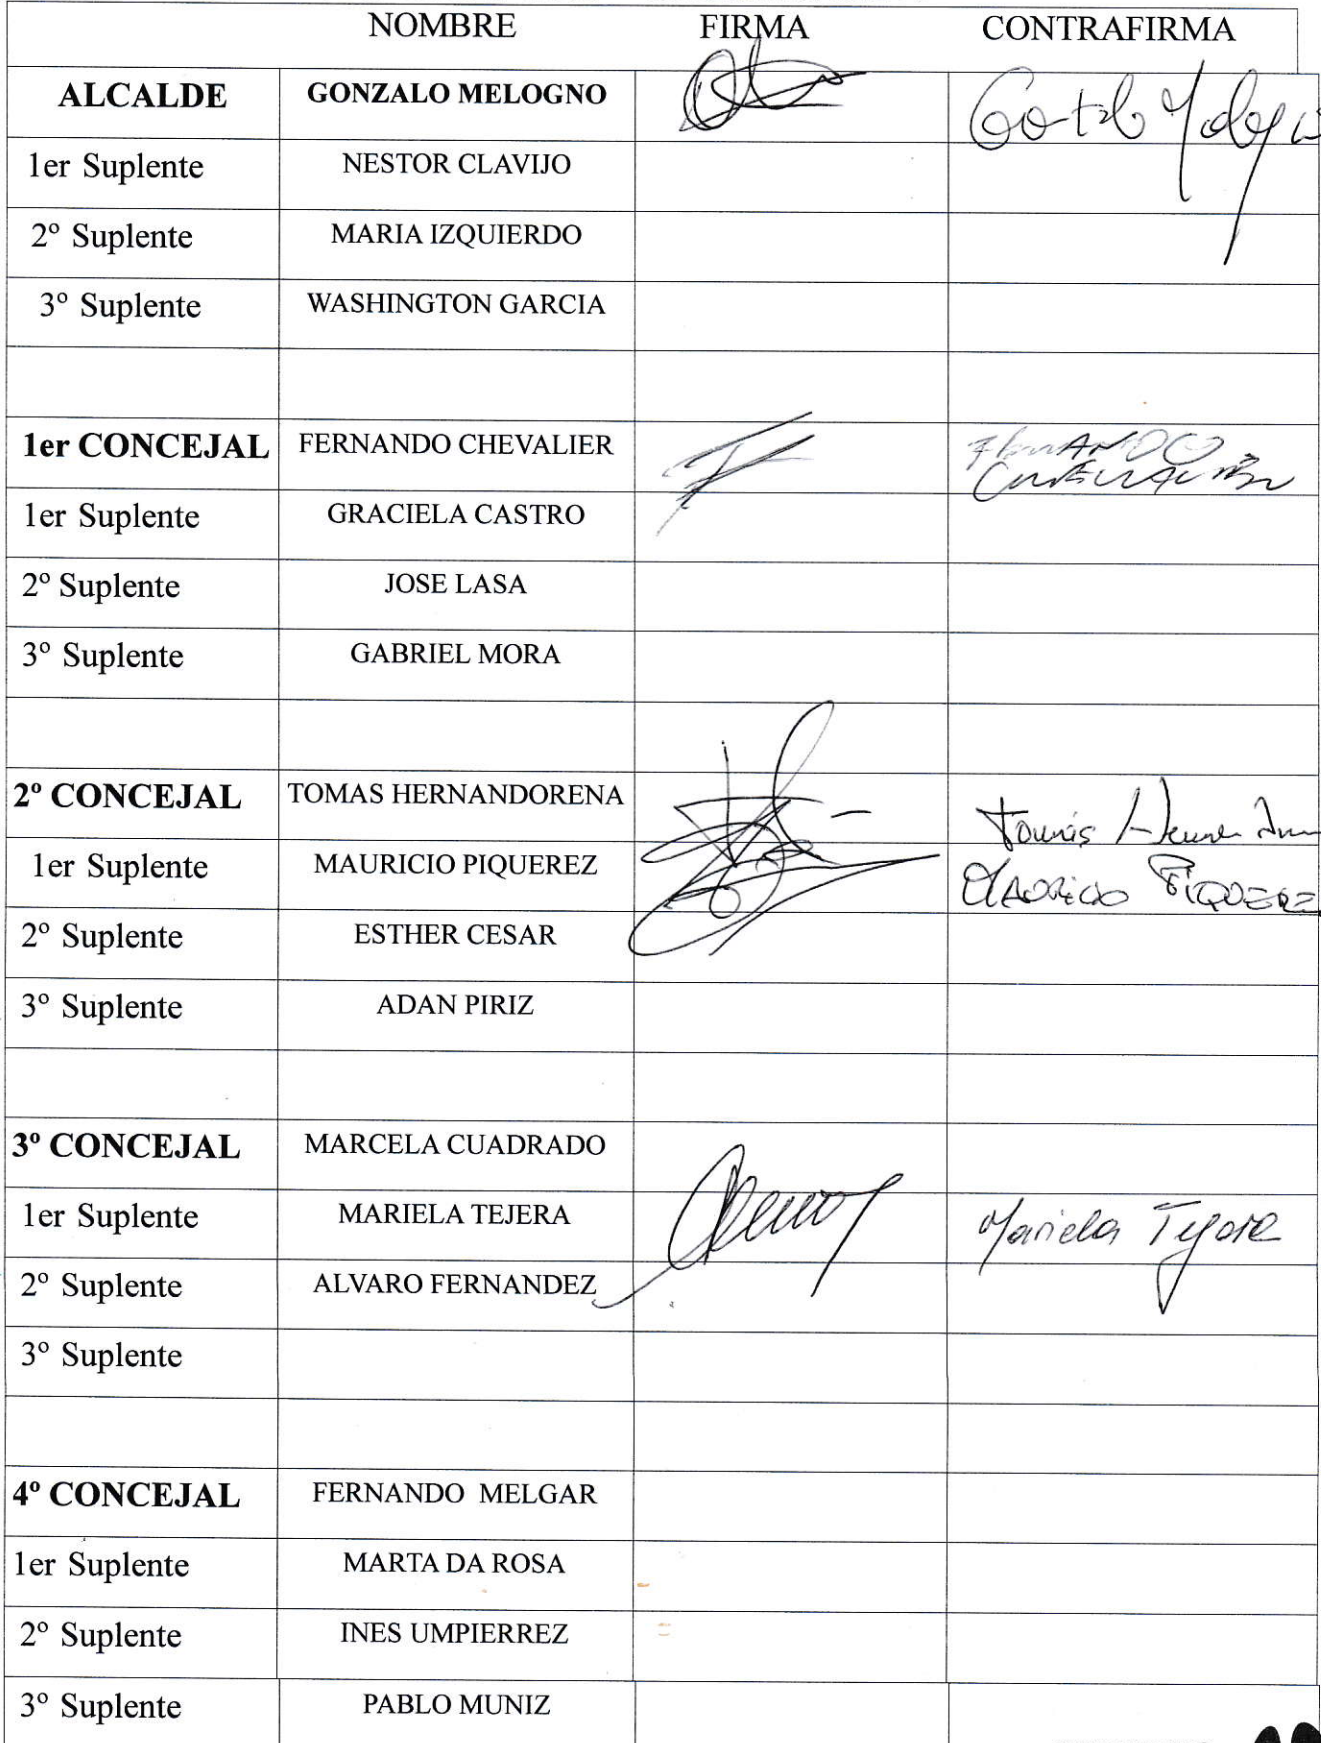 NOMBRE FIRMA CONTRAFIRMA
ALCALDE GONZALO MELOGNO Gonzalo Melogno
1er Suplente NESTOR CLAVIJO
2º Suplente MARIA IZQUIERDO
3º Suplente WASHINGTON GARCIA
1er CONCEJAL FERNANDO CHEVALIER FERNANDO
1er Suplente GRACIELA CASTRO
2º Suplente JOSE LASA
3º Suplente GABRIEL MORA
2º CONCEJAL TOMAS HERNANDORENA Tomás
1er Suplente MAURICIO PIQUEREZ MAURICIO PIQUEREZ
2º Suplente ESTHER CESAR
3º Suplente ADAN PIRIZ
3º CONCEJAL MARCELA CUADRADO
1er Suplente MARIELA TEJERA Mariela Tejera
2º Suplente ALVARO FERNANDEZ
3º Suplente
4º CONCEJAL FERNANDO MELGAR
1er Suplente MARTA DA ROSA
2º Suplente INES UMPIERREZ
3º Suplente PABLO MUNIZ